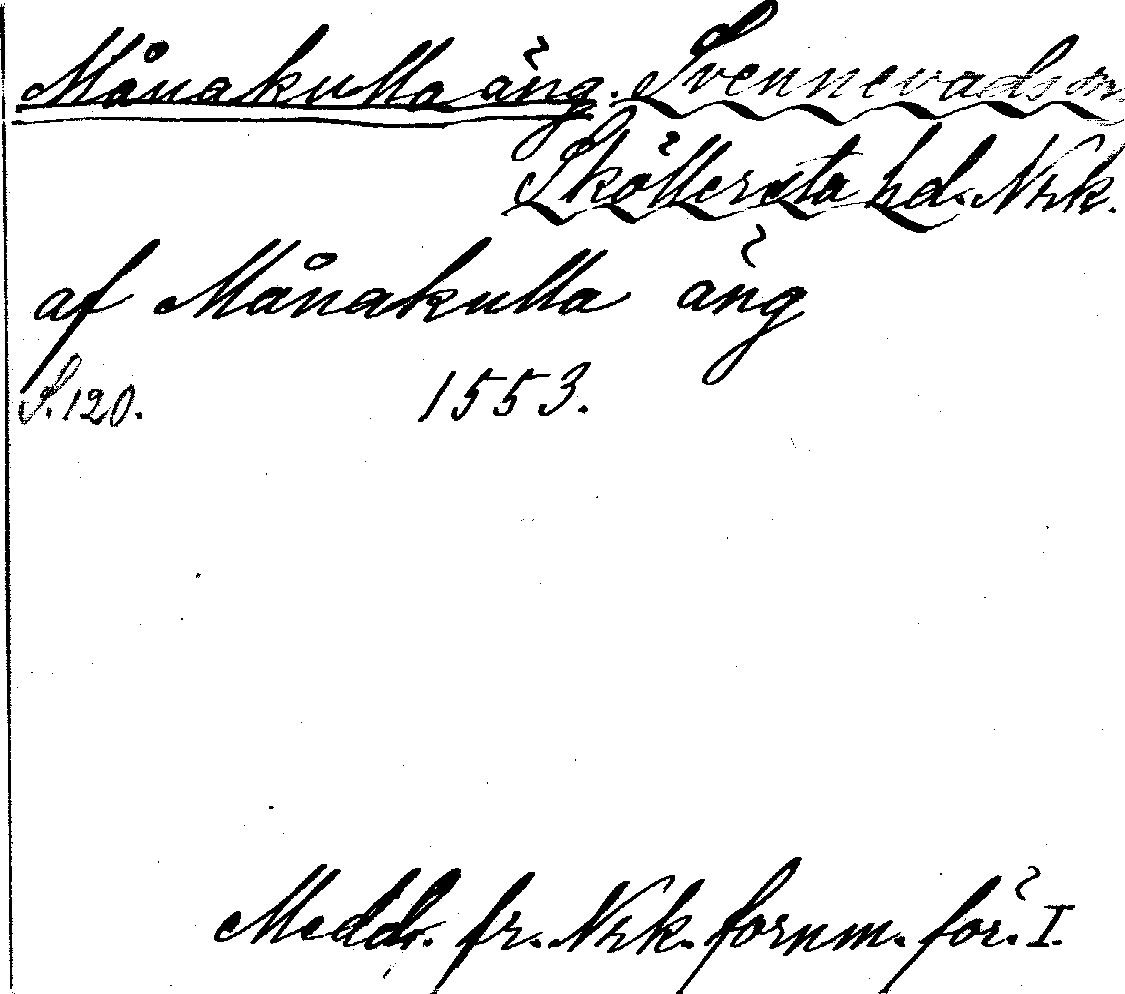 Månakulla äng. Svennevads sn.
Sköllersta hd. Nrk.
af Månakulla äng
S. 120. 1553.
Medd. fr. Nrk. fornm. för. I.